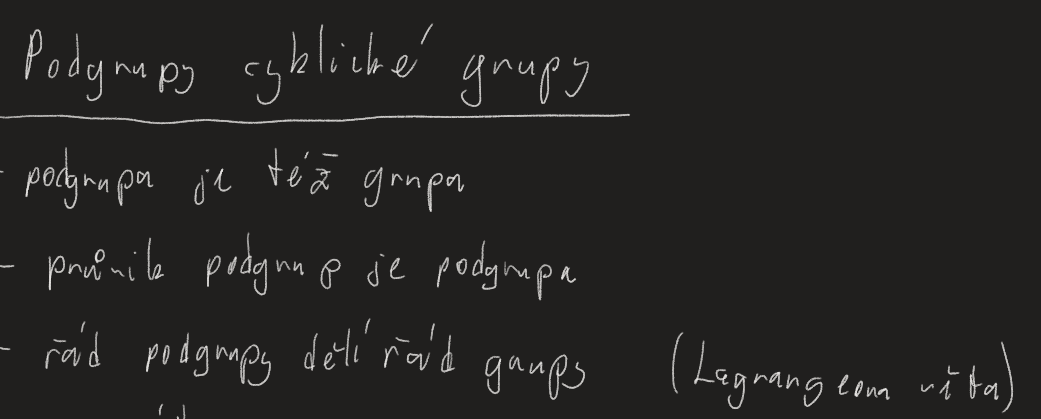 Podgrupy cyklické grupy
- podgrupa je též grupa
- průnik podgrup je podgrupa
- řád podgrupy dělí řád grupy (Lagrangeova věta)